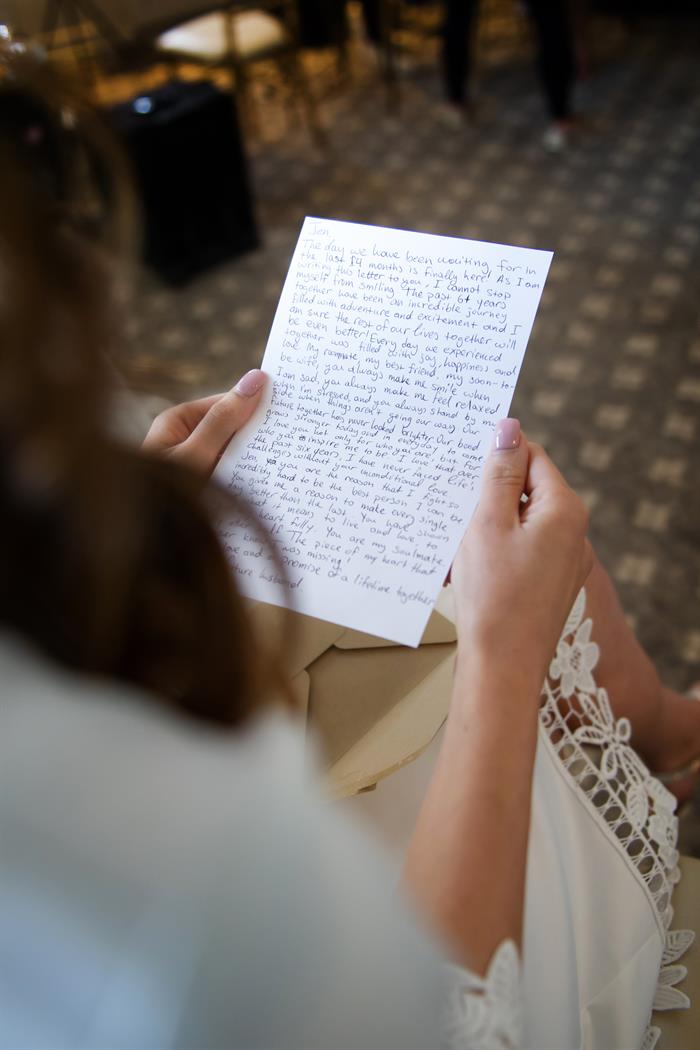 Jen,
The day we have been waiting for in
the last 14 months is finally here! As I am
writing this letter to you, I cannot stop
myself from smiling. The past 6+ years
together have been an incredible journey
filled with adventure and excitement and I
am sure the rest of our lives together will
be even better! Every day we experienced
together was filled with joy, happiness and
love. My roommate, my best friend, my soon-to-
be wife, you always make me smile when
I am sad, you always make me feel relaxed
when I'm stressed, and you always stand by my
side when things aren't going our way. Our
future together has never looked brighter. Our bond
grows stronger today and in everyday to come.
I love you not only for who you are, but for
who you inspire me to be. I love that over
the past six years, I have never faced life's
challenges without your unconditional love.
Jen, you are the reason that I fight so
incredibly hard to be the best person I can be.
You give me a reason to make every single
day better than the last. You have shown
what it means to live and love, to
heart fully. You are my soulmate,
half. The piece of my heart that
knew was missing!
love and a promise of a lifetime together
future husband